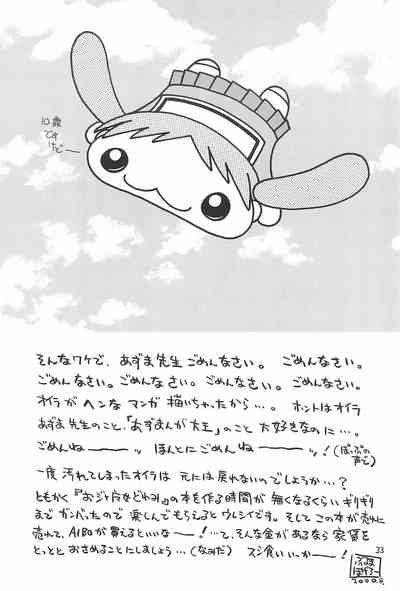 10歳
です
けどー
そんなワケで、あずま先生ごめんなさい。 ごめんなさい。
ごめんなさい。ごめんなさい。ごめんなさい。ごめんなさい。
オイラがヘンなマンガ描いちゃったから…。 ホントはオイラ
あずま先生のこと、「あずまんが大王」のこと大好きなのに…。
ごめんねーーッ ほんとにごめんねーーーッ!(ぽっぷの
声で)
一度汚れてしまったオイラは 元には戻れないのでしょうか…?
ともかく『おジャ魔などれみ』の本も作る時間が無くなるくらいギリギリ
までガンバったので楽しんでもらえるとウレシイです。そしてこの本が売れに
売れて、AIBOが買えるといいなー!…て、そんな金があるなら家賃を
とっととおさめることにしましょう…(なみだ) スシ食いいっかーー!
33
2000.8.